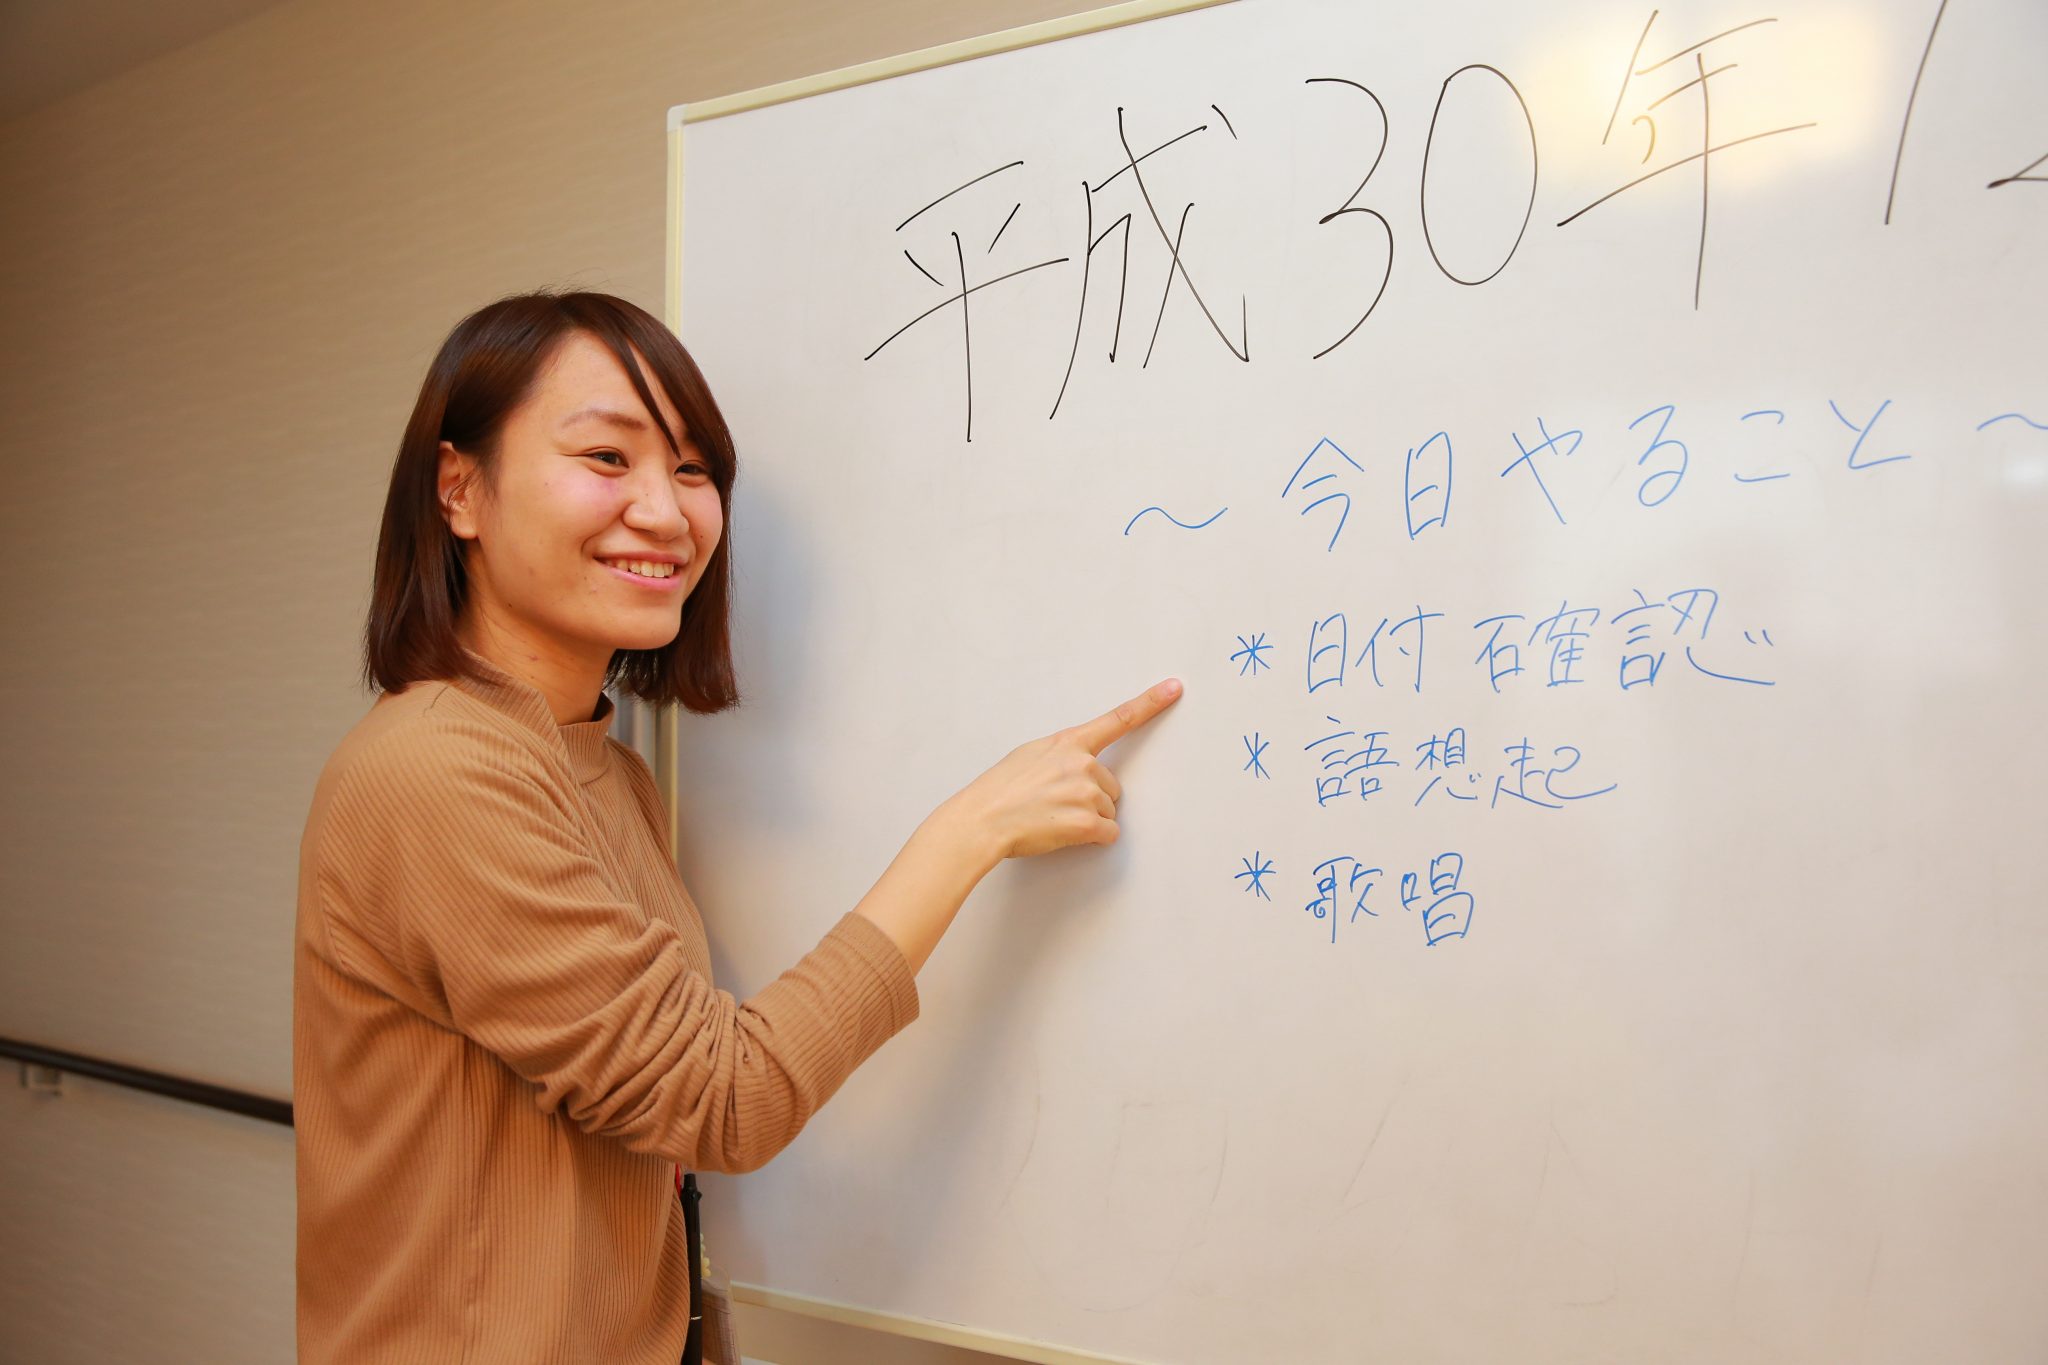 平成30年12
～今日やること～
*日付確認
*語想起
*歌唱